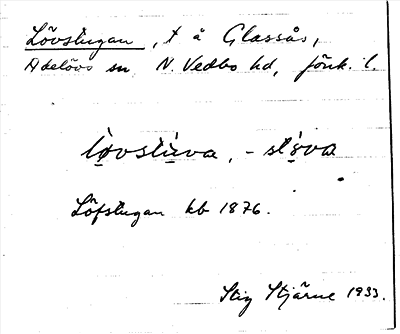 Lövstugan, t å Glassås,
Adelövs sn, N. Vedbo hd, Jönk. l.
lǫvstu̱va, -stu̱va
Löfstugan kb 1876.
Stig Stjärne 1933.